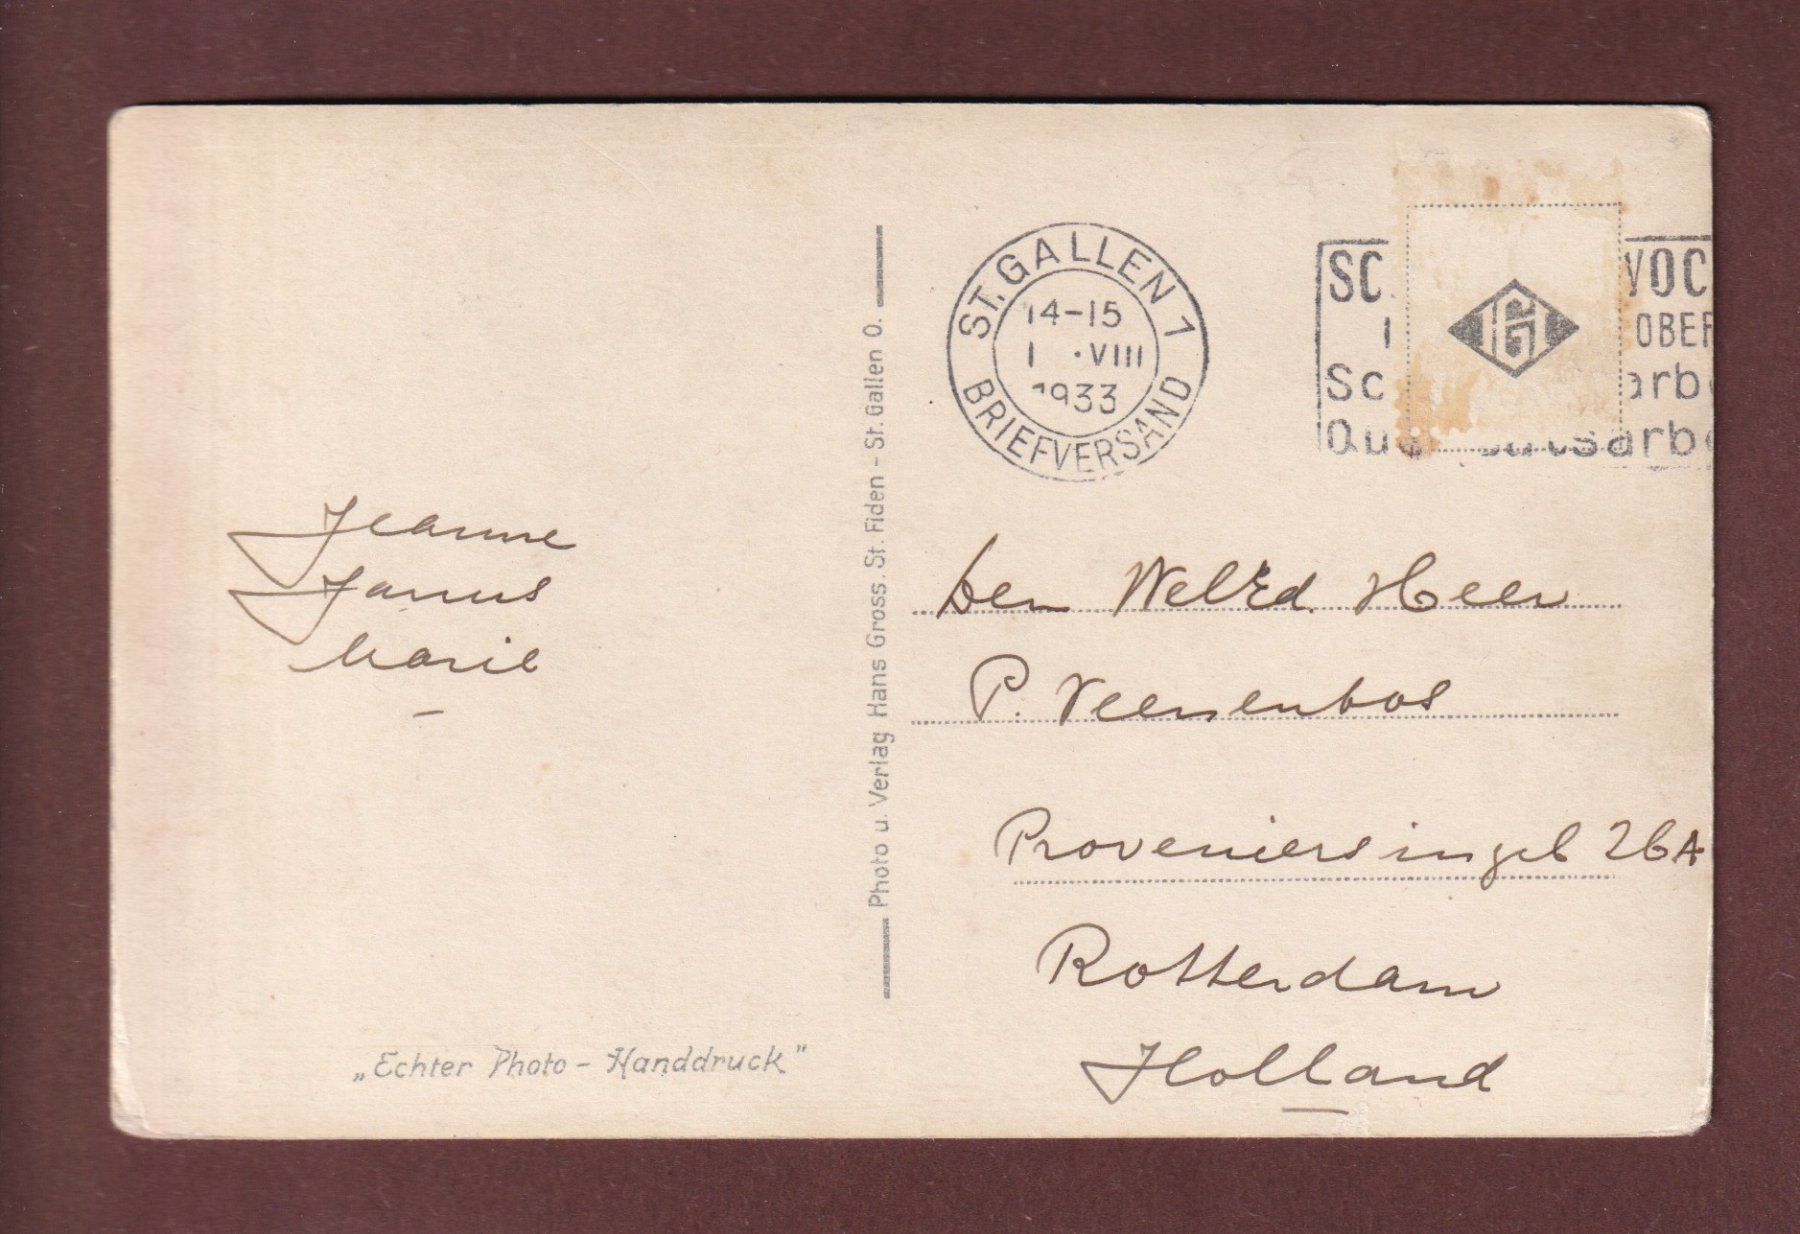 ST. GALLEN 1
14-15
1 · VIII
1933
BRIEFVERSAND
SC VOC
1 OBER
Sc arb
Qu tsarb
G
Jeanne
Jannus
Marie
Photo u. Verlag Hans Gross. St. Fiden - St. Gallen O.
den WelEd. Heer
P. Veenenbos
Proveniersingel 26A
Rotterdam
Holland
„Echter Photo - Handdruck"